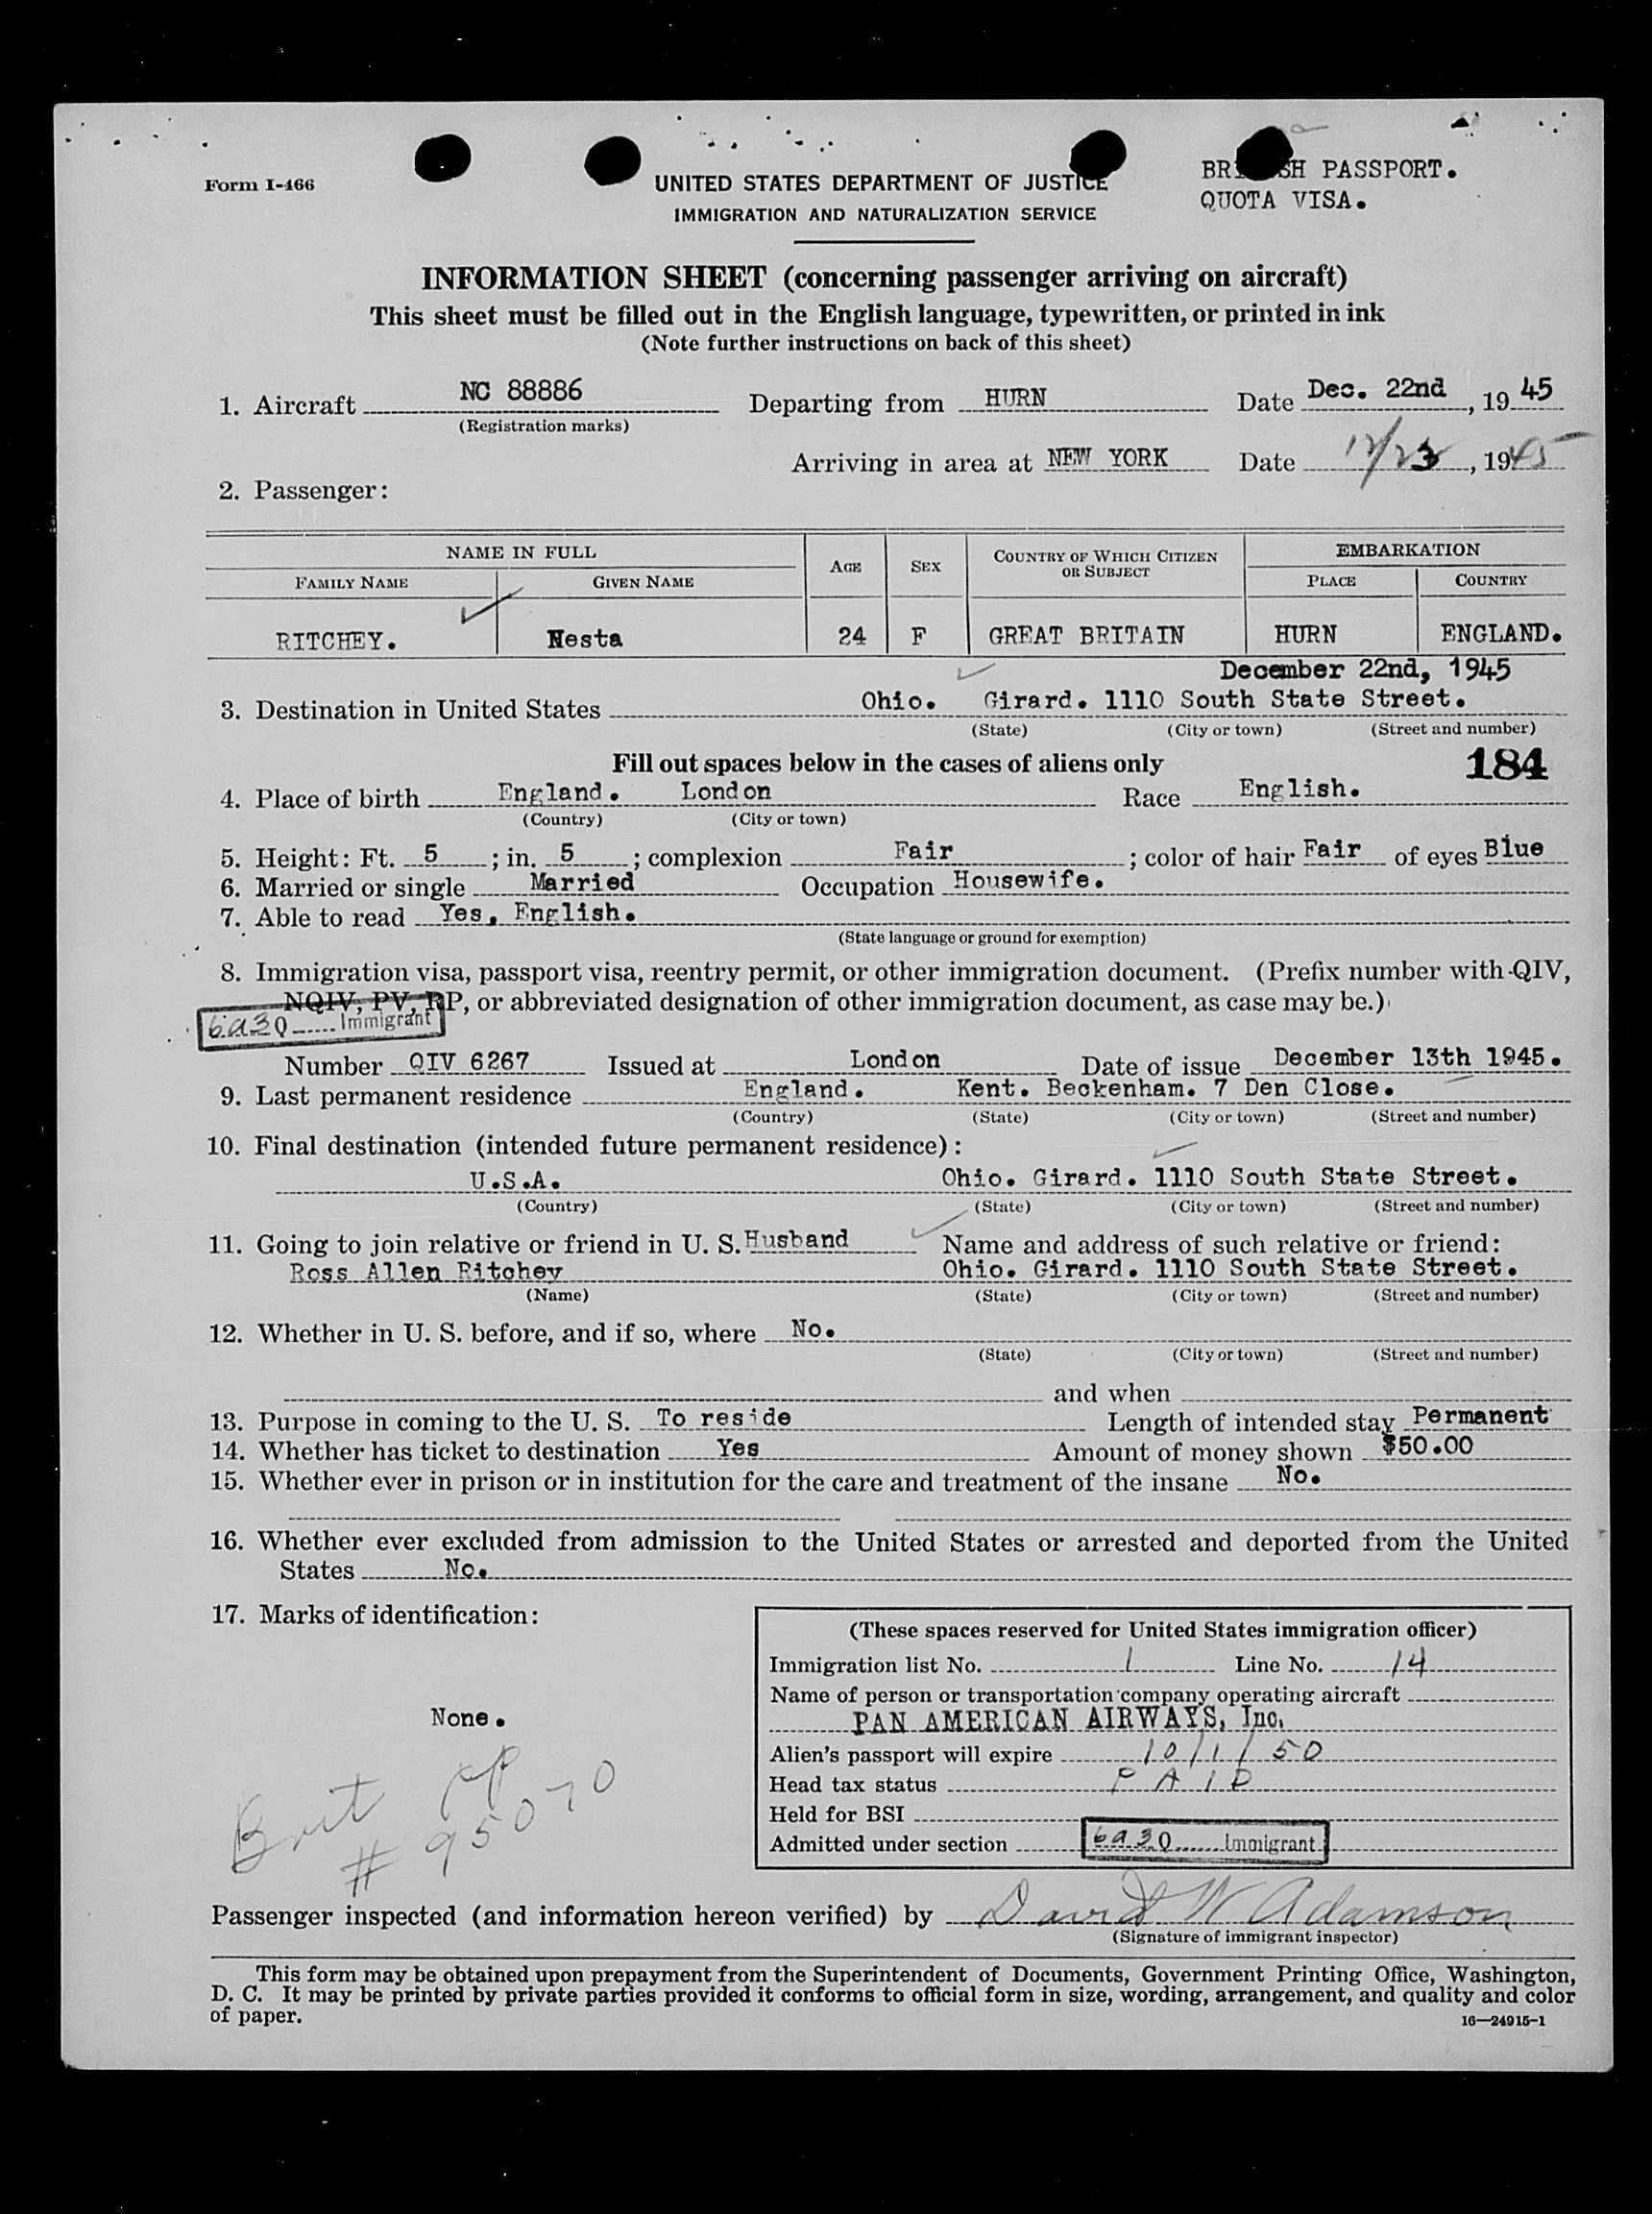 Form I-466
UNITED STATES DEPARTMENT OF JUSTICE
IMMIGRATION AND NATURALIZATION SERVICE
PASSPORT.
QUOTA VISA.
INFORMATION SHEET (concerning passenger arriving on aircraft)
This sheet must be filled out in the English language, typewritten, or printed in ink
(Note further instructions on back of this sheet)
1. Aircraft NC 88886 Departing from HURN Date Dec. 22nd, 19 45
(Registration marks)
Arriving in area at NEW YORK Date 12/23, 1945
2. Passenger:
NAME IN FULL AGE SEX COUNTRY OF WHICH CITIZEN OR SUBJECT EMBARKATION
FAMILY NAME GIVEN NAME PLACE COUNTRY
RITCHEY. Nesta 24 F GREAT BRITAIN HURN ENGLAND.
December 22nd, 1945
3. Destination in United States Ohio. Girard. 1110 South State Street.
(State) (City or town) (Street and number)
Fill out spaces below in the cases of aliens only 184
4. Place of birth England. London Race English.
(Country) (City or town)
5. Height: Ft. 5; in. 5; complexion Fair; color of hair Fair of eyes Blue
6. Married or single Married Occupation Housewife.
7. Able to read Yes, English.
(State language or ground for exemption)
8. Immigration visa, passport visa, reentry permit, or other immigration document. (Prefix number with QIV,
NQIV, PV, RP, or abbreviated designation of other immigration document, as case may be.)
6a3Q Immigrant
Number QIV 6267 Issued at London Date of issue December 13th 1945.
9. Last permanent residence England. Kent. Beckenham. 7 Den Close.
(Country) (State) (City or town) (Street and number)
10. Final destination (intended future permanent residence):
U.S.A. Ohio. Girard. 1110 South State Street.
(Country) (State) (City or town) (Street and number)
11. Going to join relative or friend in U. S. Husband Name and address of such relative or friend:
Ross Allen Ritchey Ohio. Girard. 1110 South State Street.
(Name) (State) (City or town) (Street and number)
12. Whether in U. S. before, and if so, where No.
(State) (City or town) (Street and number)
and when
13. Purpose in coming to the U. S. To reside Length of intended stay Permanent
14. Whether has ticket to destination Yes Amount of money shown $50.00
15. Whether ever in prison or in institution for the care and treatment of the insane No.
16. Whether ever excluded from admission to the United States or arrested and deported from the United
States No.
17. Marks of identification:
None.
Brit PP
# 95070
(These spaces reserved for United States immigration officer)
Immigration list No. 1 Line No. 14
Name of person or transportation company operating aircraft
PAN AMERICAN AIRWAYS, Inc.
Alien's passport will expire 10/1/50
Head tax status PAID
Held for BSI
Admitted under section 6a3Q Immigrant
Passenger inspected (and information hereon verified) by David W Adamson
(Signature of immigrant inspector)
This form may be obtained upon prepayment from the Superintendent of Documents, Government Printing Office, Washington,
D. C. It may be printed by private parties provided it conforms to official form in size, wording, arrangement, and quality and color
of paper.
16—24915-1